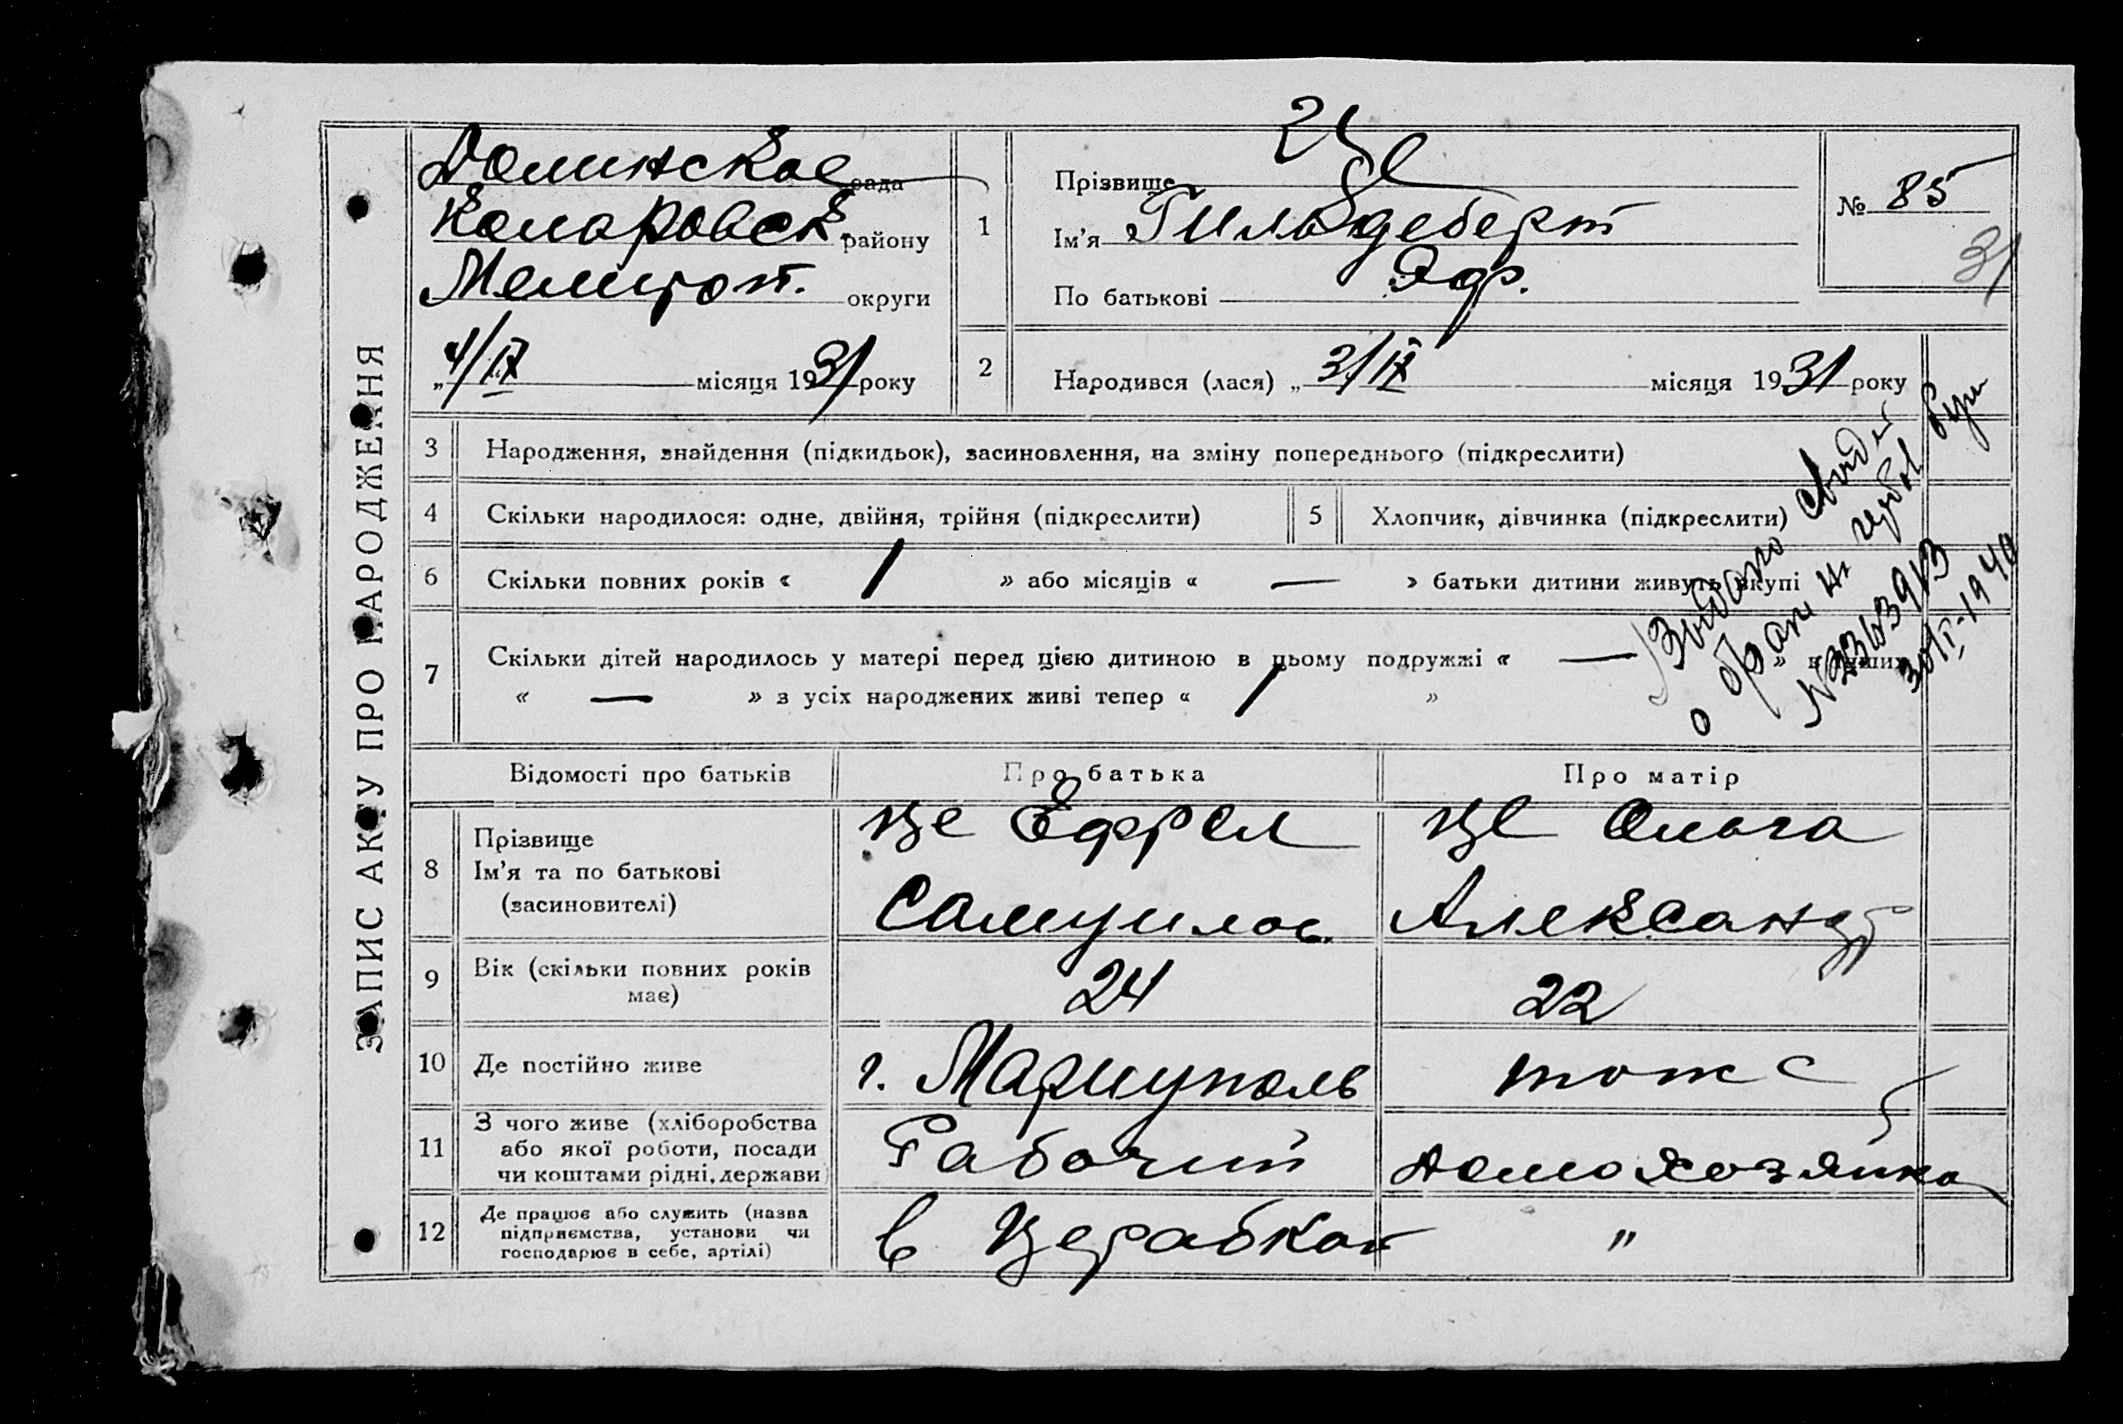 ЗАПИС АКТУ ПРО НАРОДЖЕННЯ
Долинское рада
Коларовск. району
Мелитоп. округи
„4/IX місяця 1931 року
1
Прізвище Це
Ім'я Гильдеберт
По батькові Эфр.
№ 85
31
2
Народився (лася) „3/IX місяця 1931 року
3 Народження, знайдення (підкидьок), засиновлення, на зміну попереднього (підкреслити)
4 Скільки народилося: одне, двійня, трійня (підкреслити)
5 Хлопчик, дівчинка (підкреслити)
6 Скільки повних років « 1 » або місяців « — » батьки дитини живуть вкупі
7 Скільки дітей народилось у матері перед цією дитиною в цьому подружжі « — » в інших
« — » з усіх народжених живі тепер « 1 »
30/I-1940
Відомості про батьків Про батька Про матір
8 Прізвище
Ім'я та по батькові
(засиновителі)
Це Ефрел
Самуилов.
Це Ольга
Александр
9 Вік (скільки повних років
має)
24
22
10 Де постійно живе
г. Мариуполь
тоже
11 З чого живе (хліборобства
або якої роботи, посади
чи коштами рідні, держави)
Рабочий
домохозяйка
12 Де працює або служить (назва
підприємства, установи чи
господарює в себе, артілі)
в Церабкоп
"